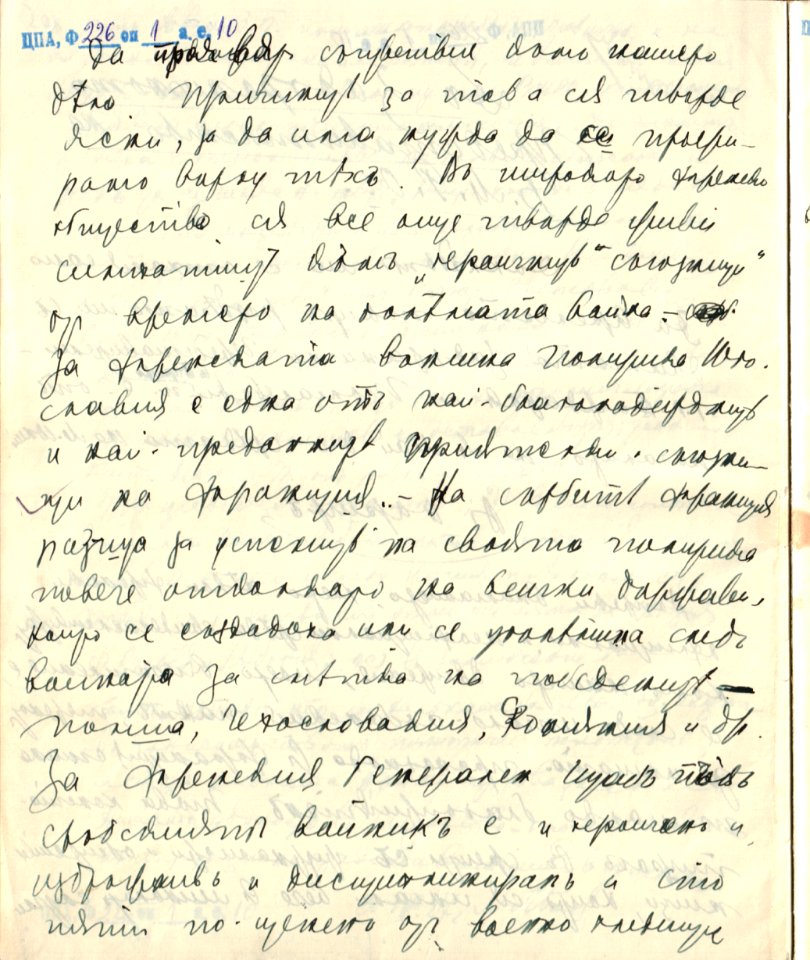 ЦПА, Ф 226 оп 1 а. е. 10
да съчувствие към нашето
дѣло Причинитѣ за това сѫ твърде
ясни, за да има нужда да се проспи-
рамо върху тѣхъ. Въ широкото френско
общество сѫ все още твърде живи
симпатиитѣ къмъ „героичнитѣ“ съюзници“
отъ времето на голѣмата война. –
За френската външна политика Юго-
славия е една отъ най-благонадежднитѣ
и най-преданнитѣ приятелки-съюзни-
ци на Франция. – На сърбитѣ Франция
разчита за успехитѣ на своята политика
повече отколкото на всички държави,
които се създадоха или се уголѣмиха следъ
войната за смѣтка на победенитѣ –
Полша, Чехословакия, Ромѫния и др.
За френския Генераленъ Щабъ
сръбскиятъ войникъ е и героиченъ и
издръжливъ и дисциплиниранъ и сто
пѫти по-цѣненъ отъ военно гледище